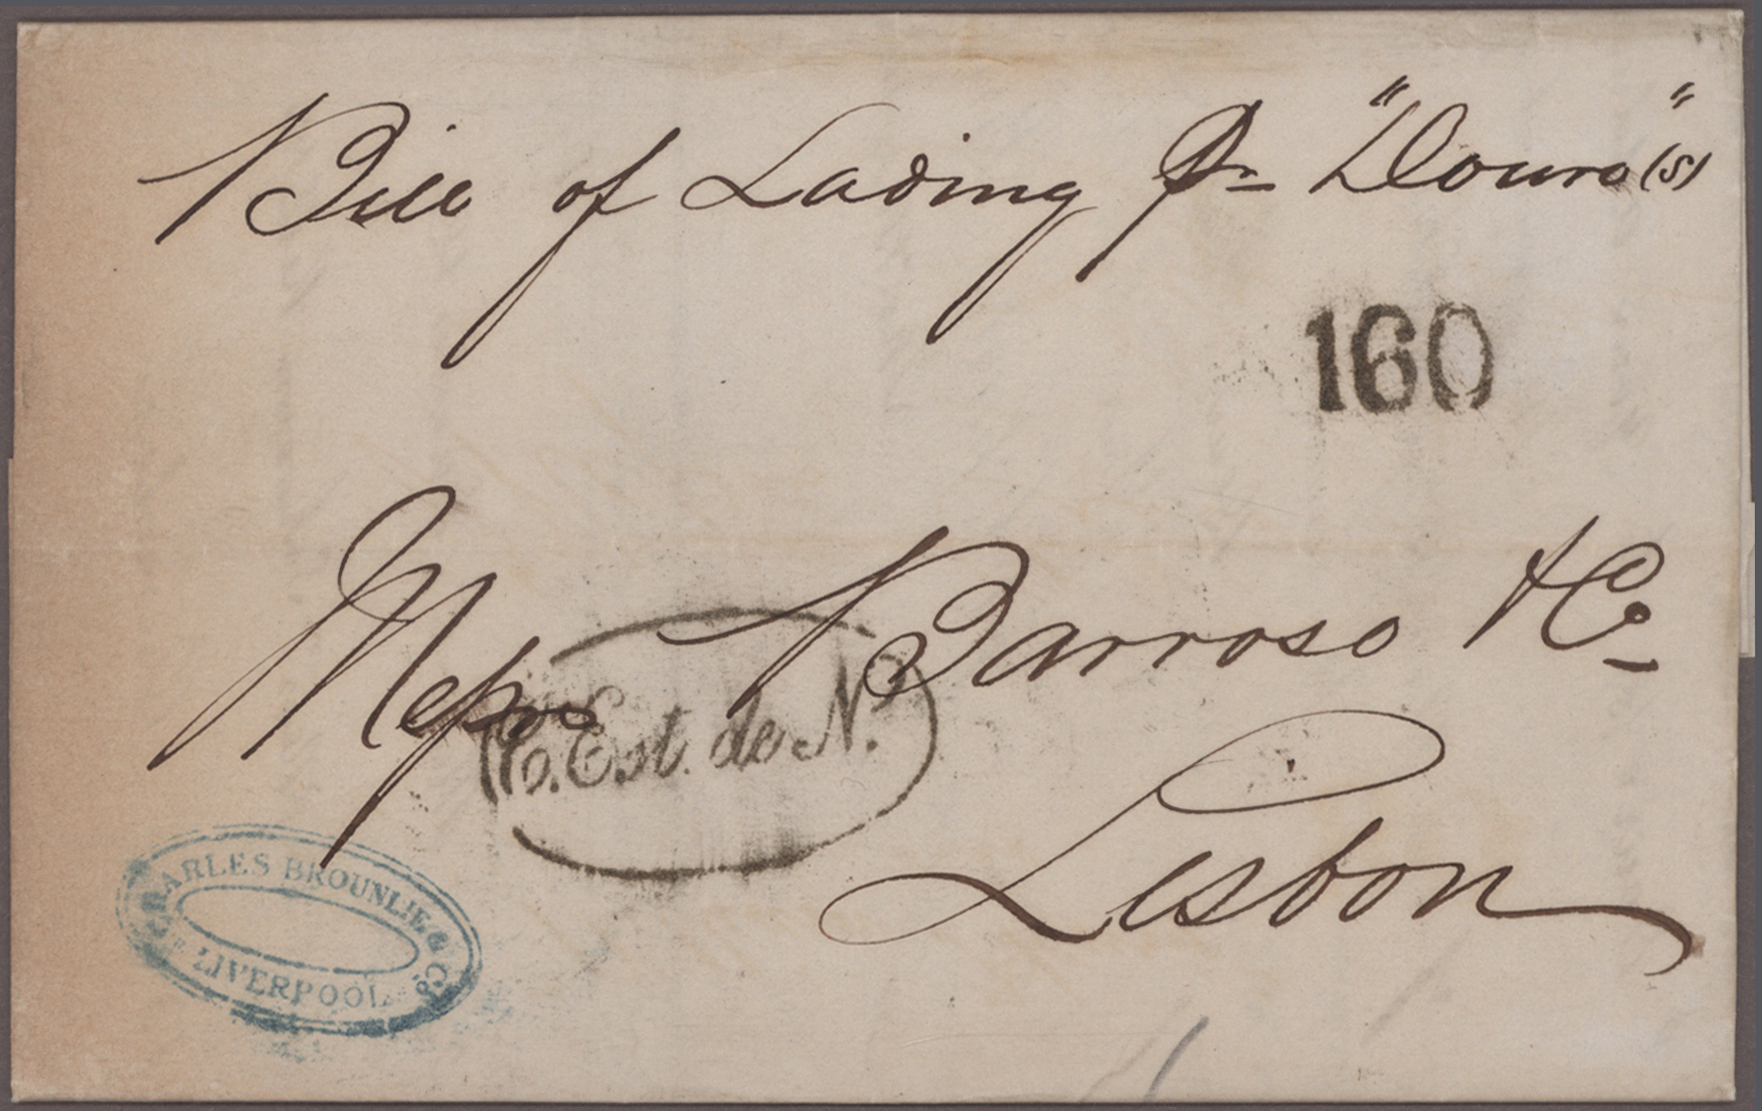 Bill of Lading Pr "Douro" (s)
160
Messrs Barroso & Co
P. Est. de N.
Lisbon
CHARLES BROUNLIE & Co.
LIVERPOOL